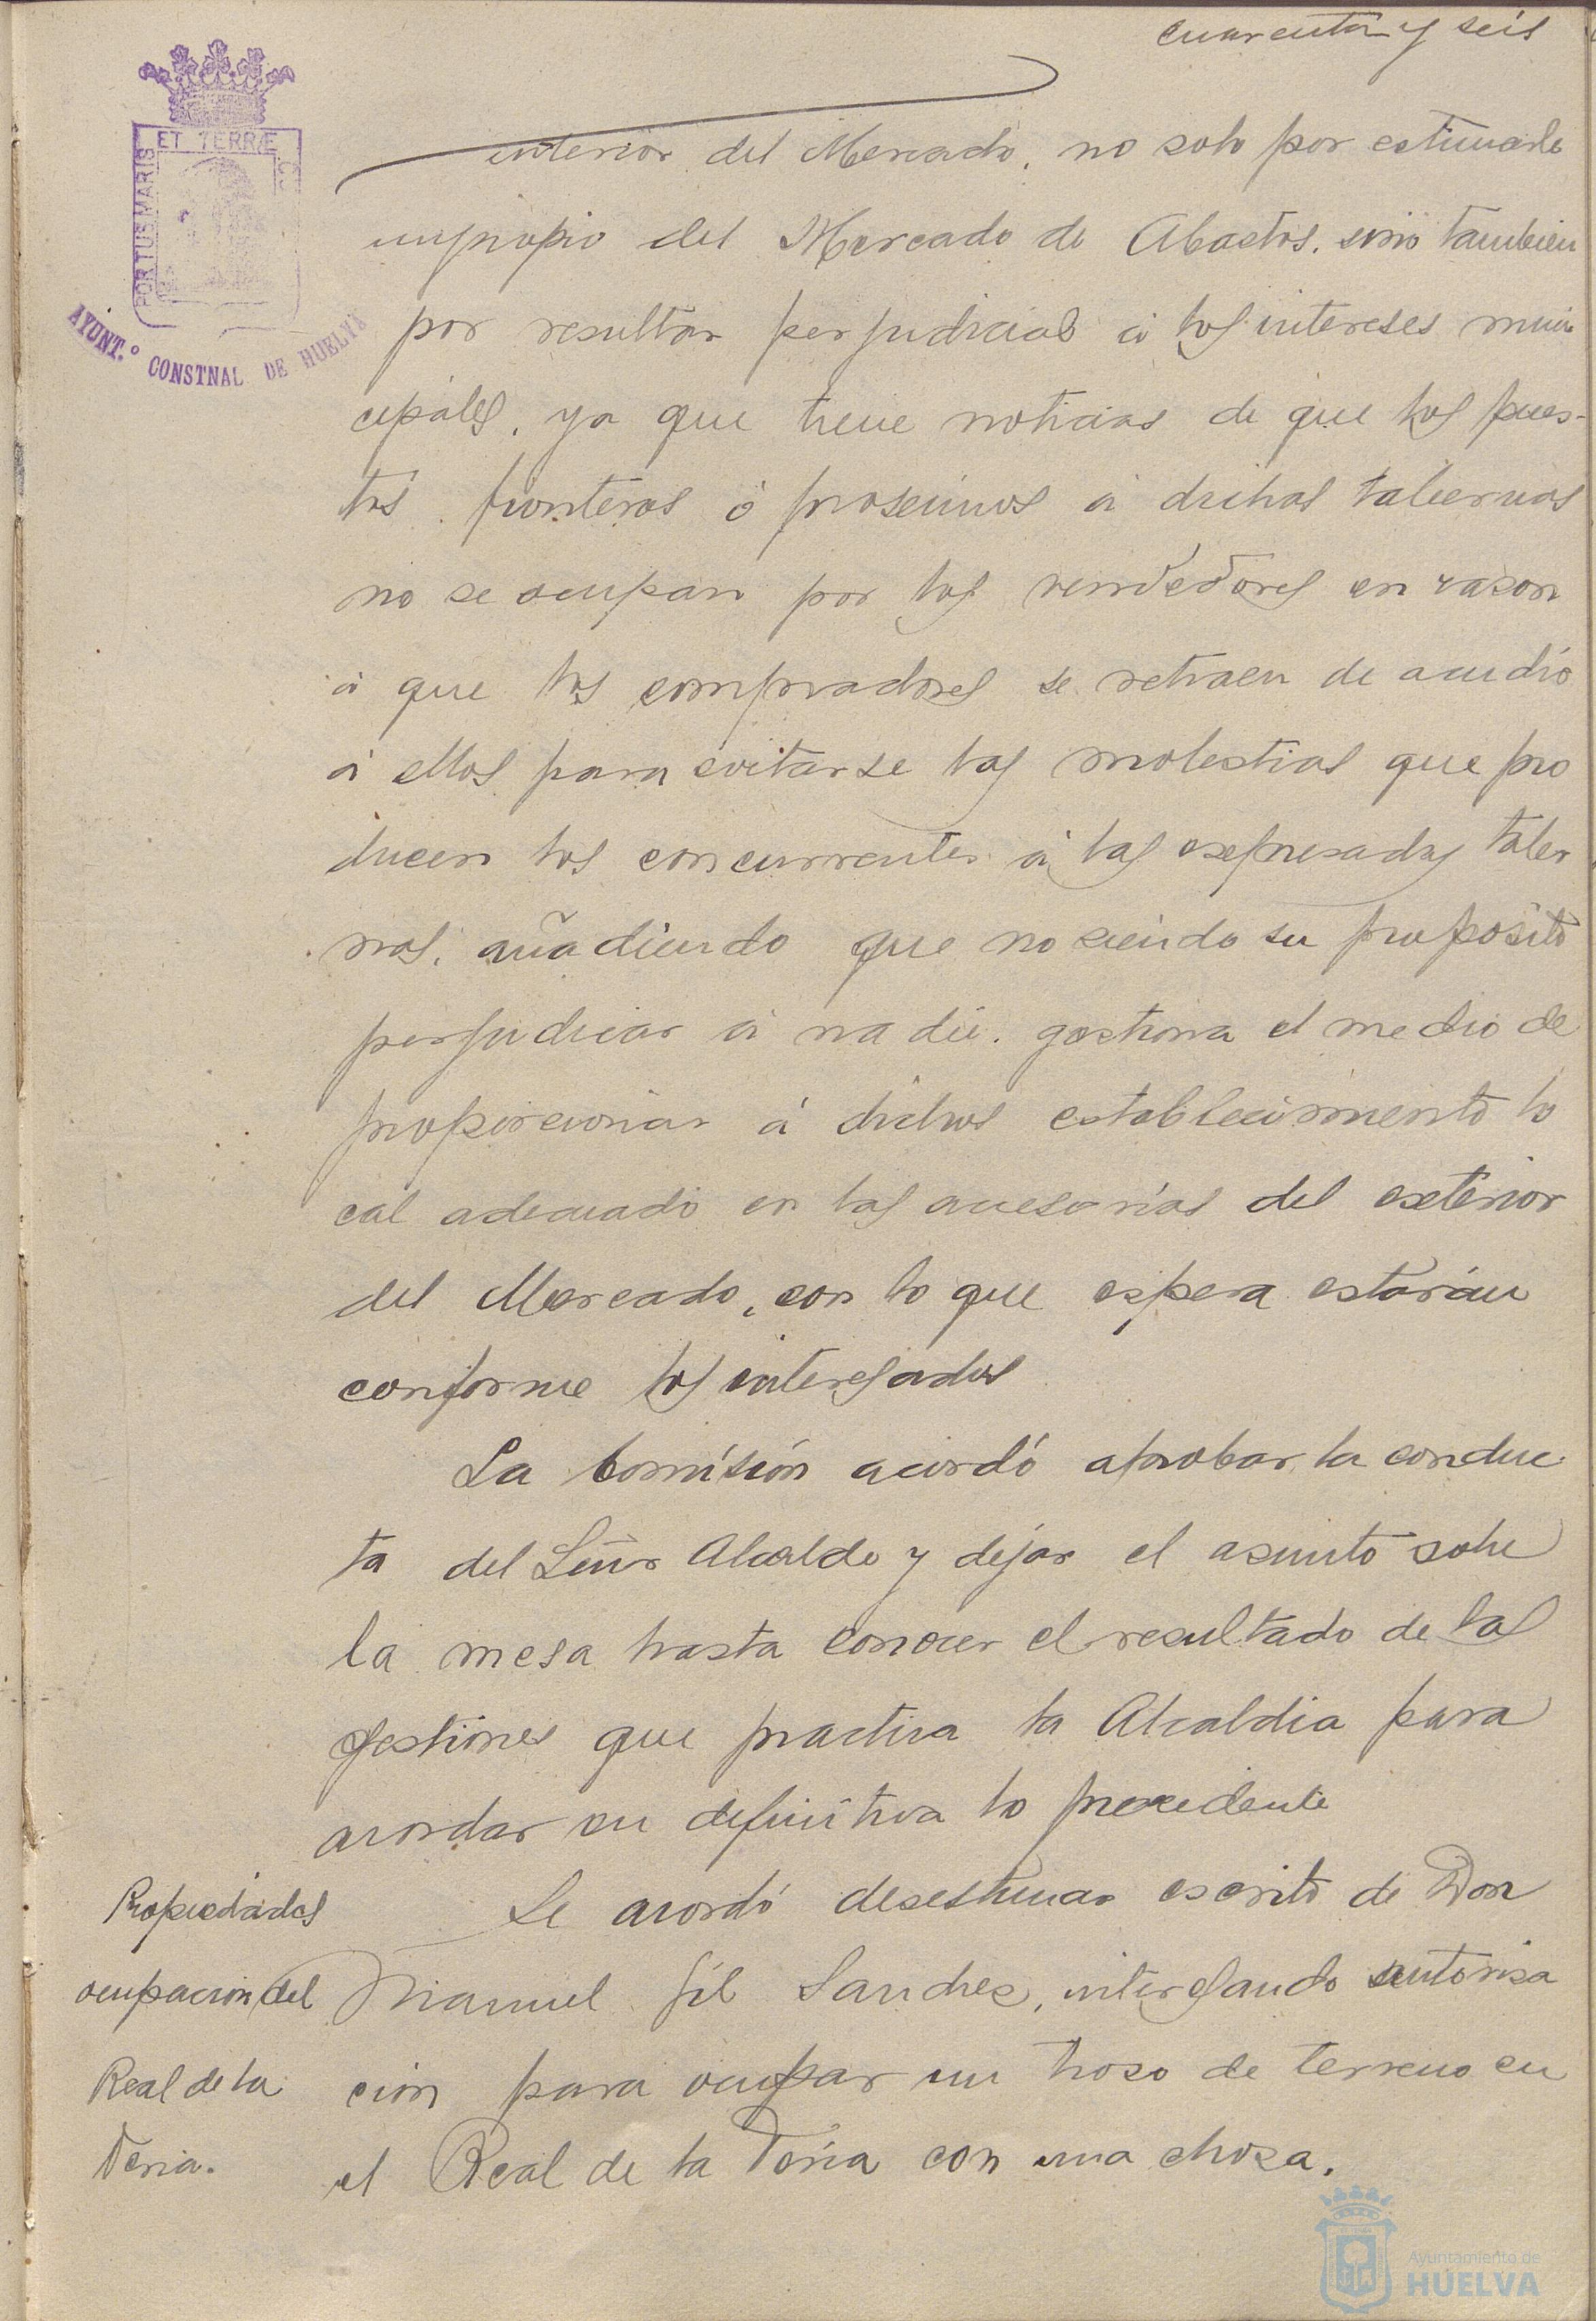 cuarenta y seis
ET TERRÆ
PORTUS MARIS
AYUNT.º CONSTNAL DE HUELVA
interior del Mercado, no solo por estimarlo
impropio del Mercado de Abastos, sino tambien
por resultar perjudicial á los intereses muni
cipales, ya que tiene noticias de que los pues-
tos fronteros ó proseimos á dichas tabernas
no se ocupan por los vendedores en rason
á que los compradores se retraen de acudir
á ellos para evitarse las molestias que pro
ducen los concurrentes á las expresadas taber
nas, añadiendo que no siendo su proposito
perjudicar á nadie, gestiona el medio de
proporcionar á dichos establecimiento lo
cal adecuado en las accesorias del exterior
del Mercado, con lo que espera estarán
conforme los interesados
La Comisión acordó aprobar la conduc
ta del Señor Alcalde y dejar el asunto sobre
la mesa hasta conocer el resultado de las
gestiones que practica la Alcaldia para
acordar en definitiva lo procedente
Propiedades
ocupacion del
Real de la
Feria.
Se acordó desestimar escrito de Don
Manuel Gil Sanches, interesando autorisa
cion para ocupar un troso de terreno en
el Real de la Feria con una chosa.
Ayuntamiento de
HUELVA